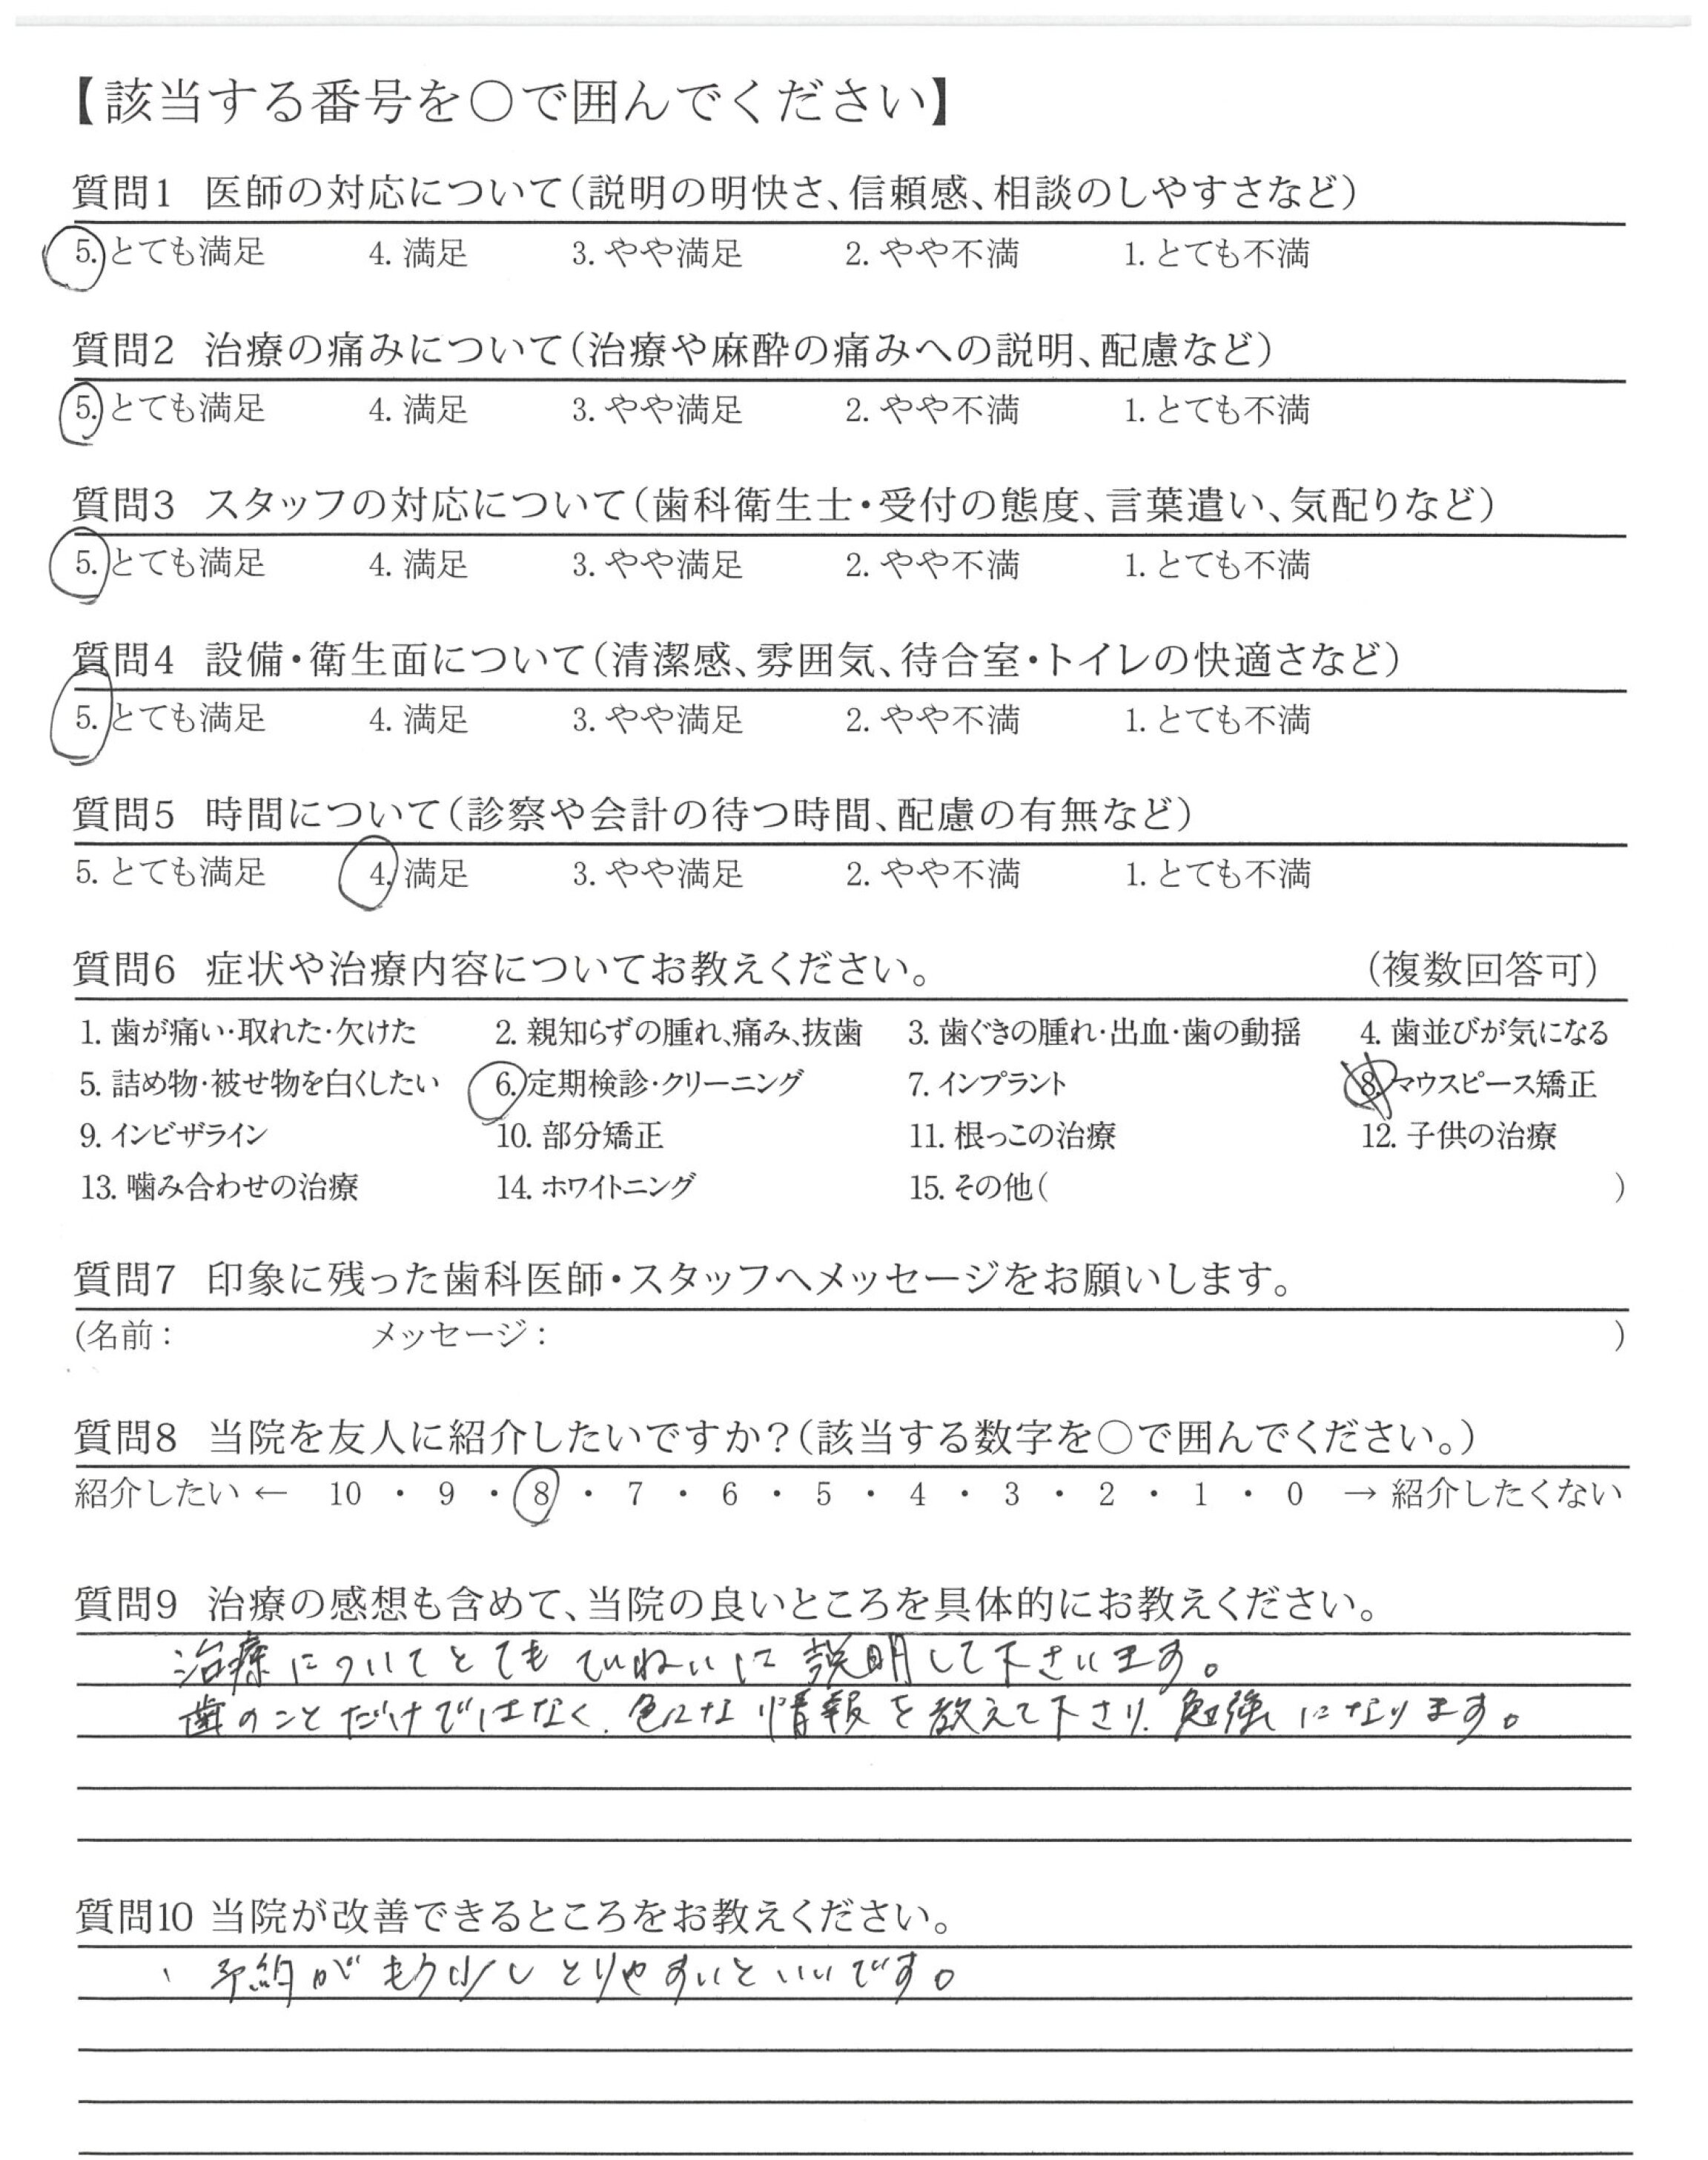 【該当する番号を○で囲んでください】
質問1 医師の対応について(説明の明快さ、信頼感、相談のしやすさなど)
5. とても満足 4. 満足 3. やや満足 2. やや不満 1. とても不満
質問2 治療の痛みについて(治療や麻酔の痛みへの説明、配慮など)
5. とても満足 4. 満足 3. やや満足 2. やや不満 1. とても不満
質問3 スタッフの対応について(歯科衛生士・受付の態度、言葉遣い、気配りなど)
5. とても満足 4. 満足 3. やや満足 2. やや不満 1. とても不満
質問4 設備・衛生面について(清潔感、雰囲気、待合室・トイレの快適さなど)
5. とても満足 4. 満足 3. やや満足 2. やや不満 1. とても不満
質問5 時間について(診察や会計の待つ時間、配慮の有無など)
5. とても満足 4. 満足 3. やや満足 2. やや不満 1. とても不満
質問6 症状や治療内容についてお教えください。 (複数回答可)
1. 歯が痛い・取れた・欠けた 2. 親知らずの腫れ、痛み、抜歯 3. 歯ぐきの腫れ・出血・歯の動揺 4. 歯並びが気になる
5. 詰め物・被せ物を白くしたい 6. 定期検診・クリーニング 7. インプラント 8. マウスピース矯正
9. インビザライン 10. 部分矯正 11. 根っこの治療 12. 子供の治療
13. 噛み合わせの治療 14. ホワイトニング 15. その他( )
質問7 印象に残った歯科医師・スタッフへメッセージをお願いします。
(名前: メッセージ: )
質問8 当院を友人に紹介したいですか?(該当する数字を○で囲んでください。)
紹介したい ← 10 ・ 9 ・ 8 ・ 7 ・ 6 ・ 5 ・ 4 ・ 3 ・ 2 ・ 1 ・ 0 → 紹介したくない
質問9 治療の感想も含めて、当院の良いところを具体的にお教えください。
治療についてとてもていねいに説明して下さいます。
歯のことだけではなく、色々な情報を教えて下さり、勉強になります。
質問10 当院が改善できるところをお教えください。
、予約がもう少しとりやすいといいです。